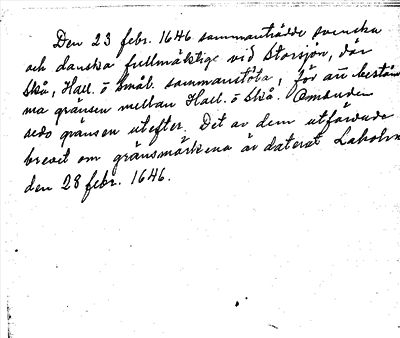 Den 23 febr. 1646 sammanträdde svenska
och danska fullmäktige vid Storsjön, där
Skå, Hall. o Småb. sammanstöta, för att bestäm
ma gränsen mellan Hall. o Skå. Omsider
redo gränsen utefter. Det av dem utfärdade
brevet om gränsmärkena är daterat Laholm
den 28 febr. 1646.